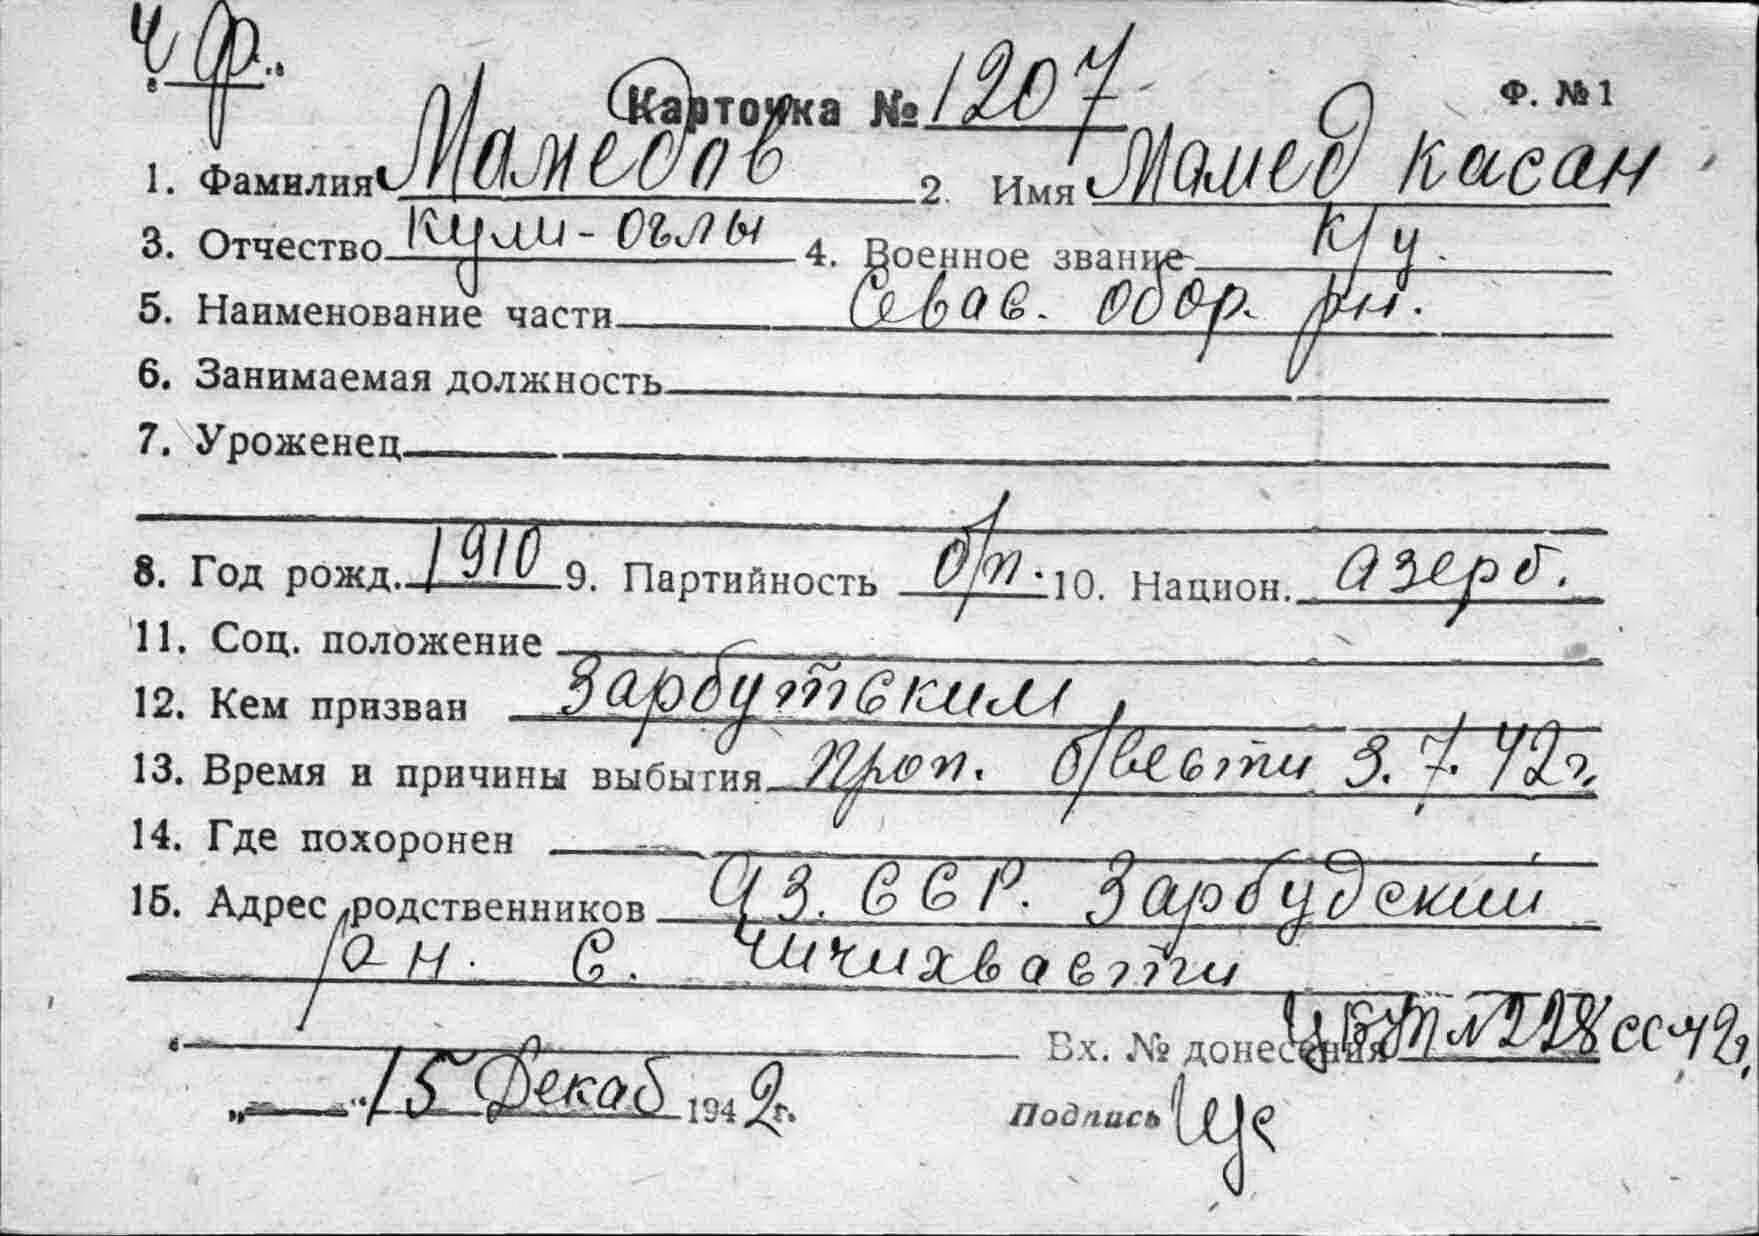 Ч.Ф.
Карточка № 1207 Ф. № 1
1. Фамилия Мамедов 2. Имя Мамед касан
3. Отчество Кули-оглы 4. Военное звание к/у.
5. Наименование части Севас. обор. рн.
6. Занимаемая должность
7. Уроженец
8. Год рожд. 1910 9. Партийность б/п. 10. Национ. азерб.
11. Соц. положение
12. Кем призван Зарбутским
13. Время и причины выбытия проп. б/вести 3.7.42г.
14. Где похоронен
15. Адрес родственников Аз. ССР. Зарбудский
рн. с. Чичихвасти
Вх. № донесения №228сс 42г.
„ “ 15 Декаб 1942г. Подпись